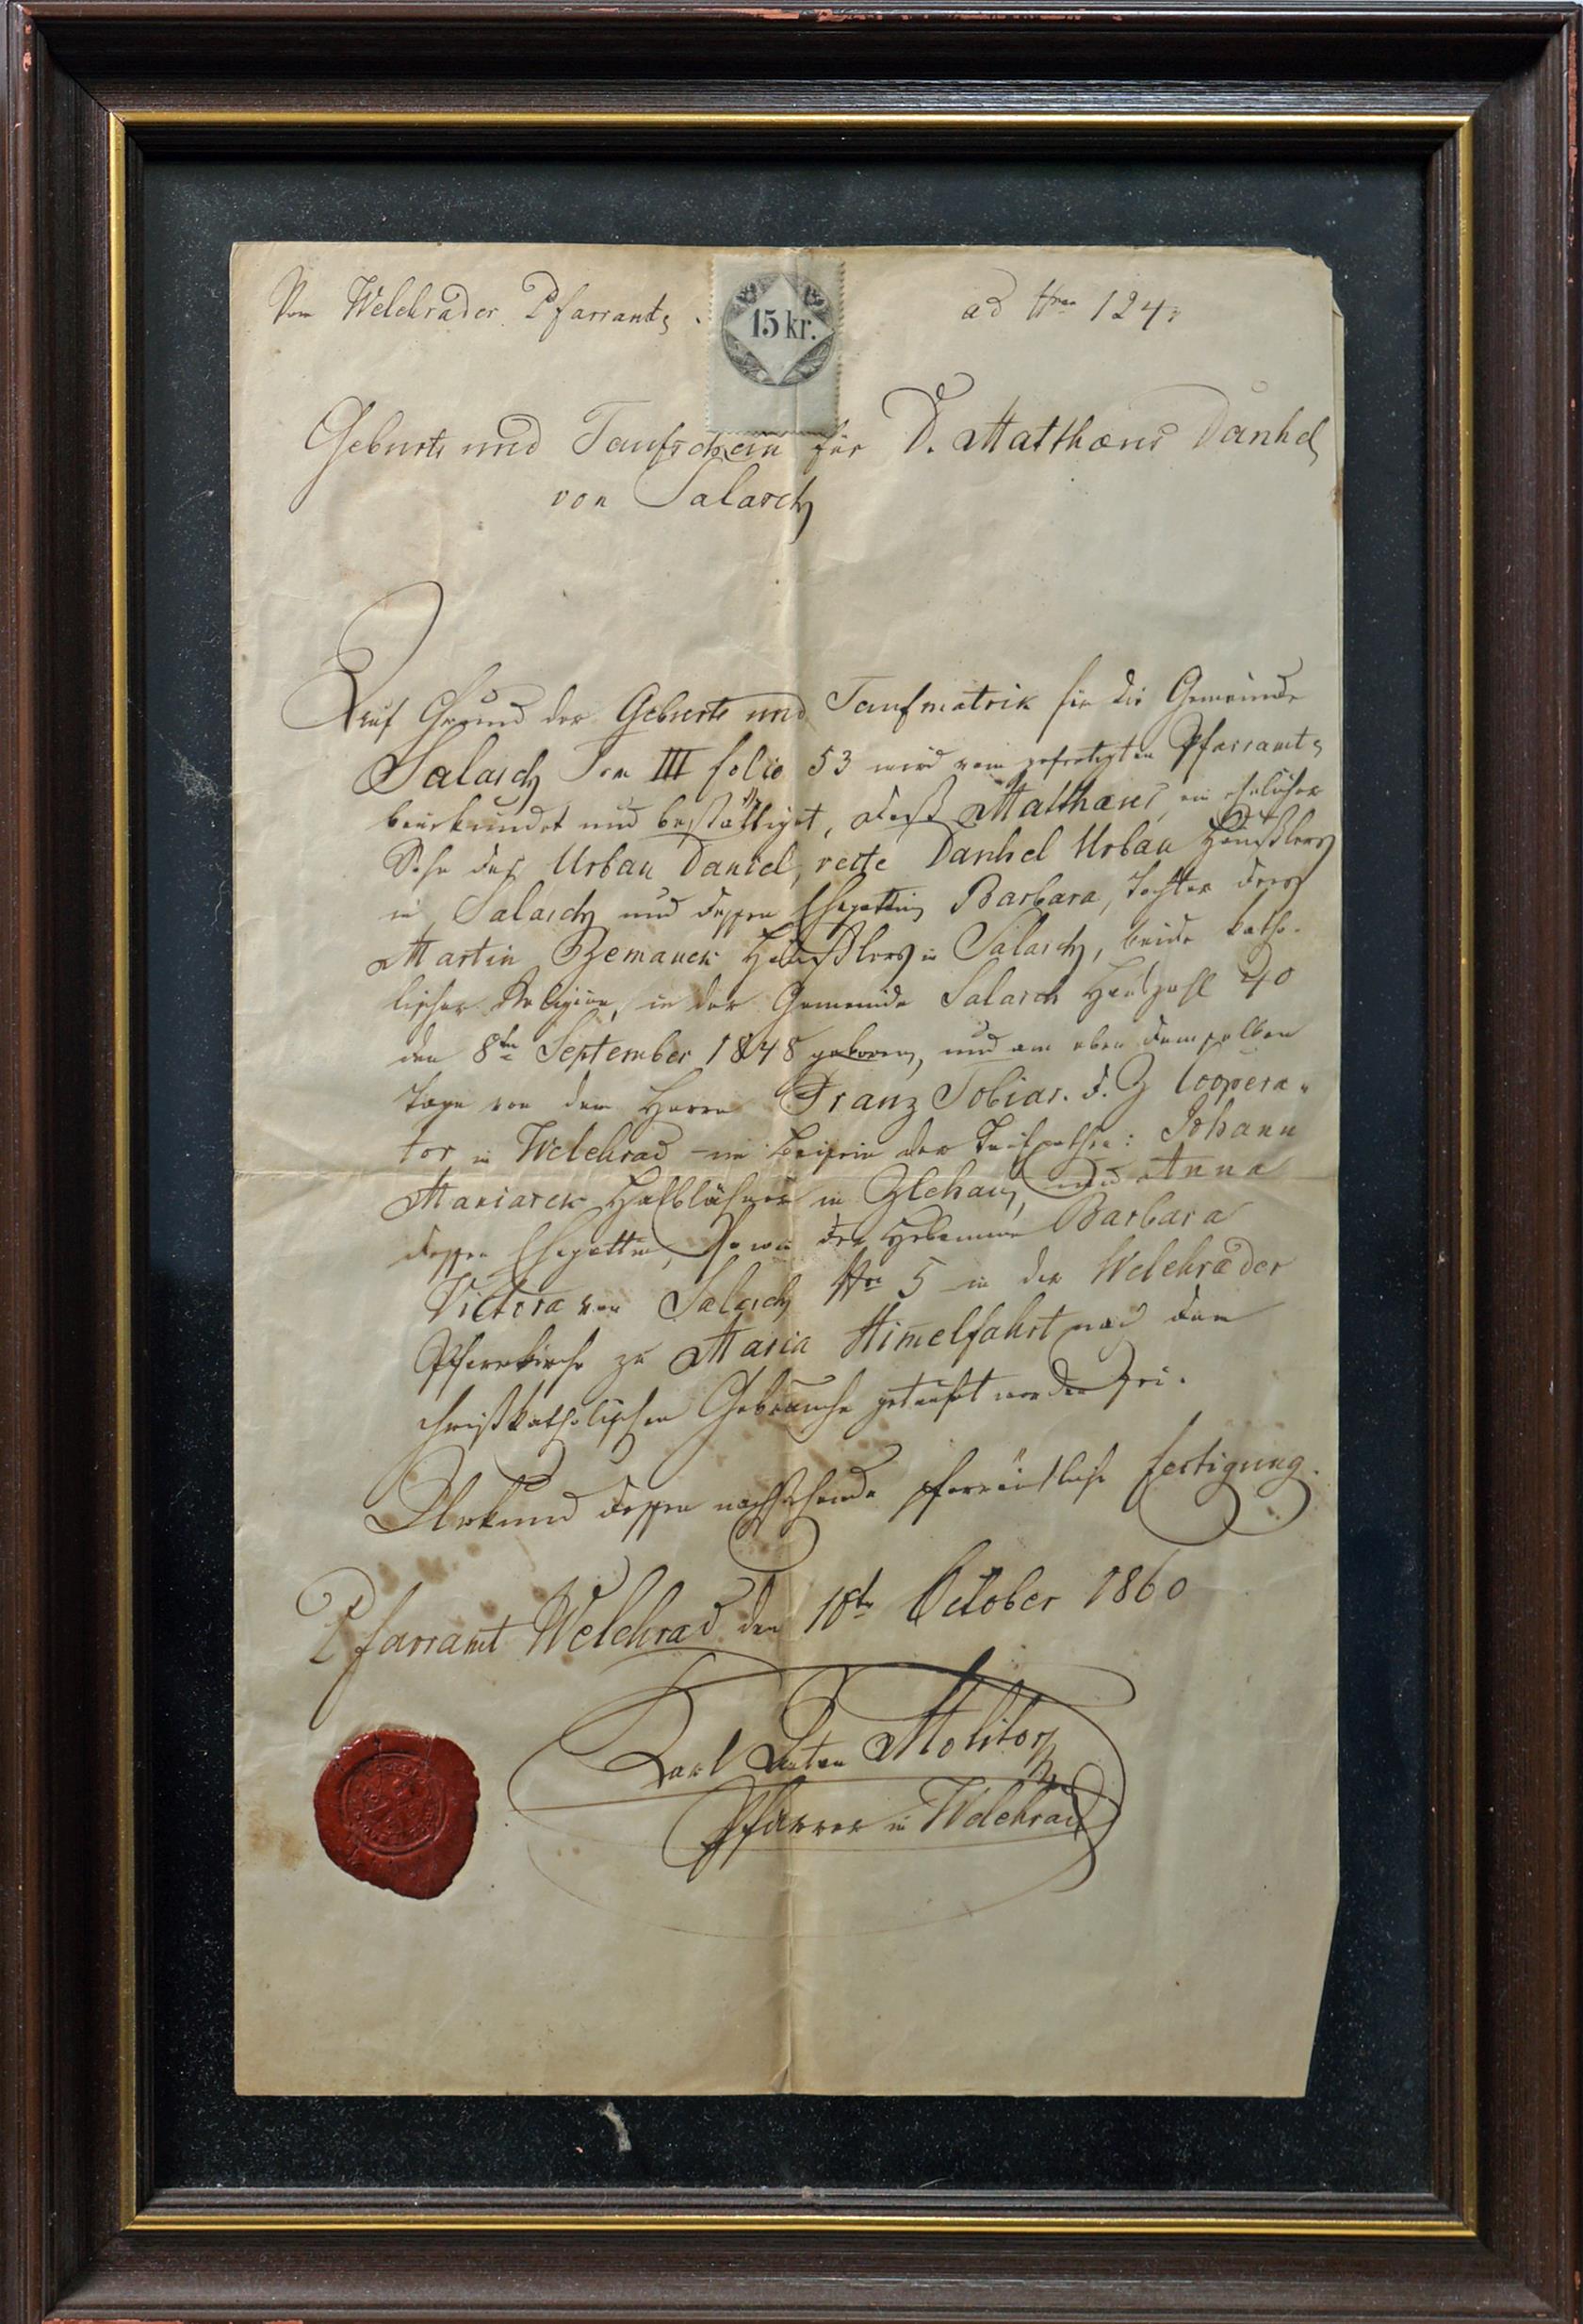 Vom Welehrader Pfarramte.
15 kr.
ad Nro 124
Geburts und Taufschein für D. Matthæus Danhel
von Salasch
Auf Grund der Geburts und Taufmatrik für die Gemeinde
Salasch Tom III folio 53 wird vom gefertigten Pfarramte
beurkundet und bestättiget, daß Matthæus, ein ehelicher
Sohn des Urban Daniel, recte Danhel Urban Häußlers
in Salasch und dessen Ehegattin Barbara, Tochter des
Martin Zemanek Häußlers in Salasch, beide katho-
lischer Religion, in der Gemeinde Salasch Hauszahl 40
den 8ten September 1848 geboren, und am eben demselben
Tage von dem Herrn Franz Tobias. d. Z Coopera-
tor in Welehrad im Beisein der Taufpathen: Johann
Halblähner in Zlechau, und Anna
dessen Ehegattin, so wie der Hebamme Barbara
von Salasch Nro 5 in der Welehrader
Pfarrkirche zu Maria Himelfahrt nach dem
christkatholischen Gebrauche getauft worden sei.
Urkund dessen nachstehende pfarrämtliche Fertigung.
Pfarramt Welehrad den October 1860
Karl Anton Molitor
Pfarrer in Welehrad